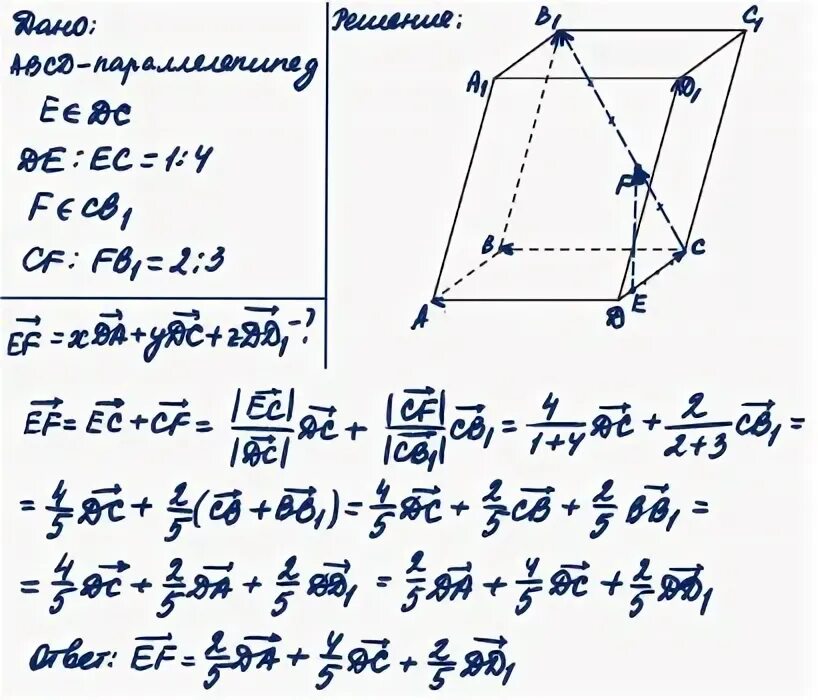 Дано:
ABCD-параллелепипед
E∈DC
DE : EC = 1:4
F∈CB₁
CF : FB₁ = 2:3
EF⃗ = xDA⃗ + yDC⃗ + zDD₁⃗ - ?
Решение:
B₁ C₁
A₁ D₁
F
B C
A D E
EF⃗ = EC⃗ + CF⃗ = |EC⃗|/|DC⃗| DC⃗ + |CF⃗|/|CB₁⃗| CB₁⃗ = 4/(1+4) DC⃗ + 2/(2+3) CB₁⃗ =
= 4/5 DC⃗ + 2/5 (CB⃗ + BB₁⃗) = 4/5 DC⃗ + 2/5 CB⃗ + 2/5 BB₁⃗ =
= 4/5 DC⃗ + 2/5 DA⃗ + 2/5 DD₁⃗ = 2/5 DA⃗ + 4/5 DC⃗ + 2/5 DD₁⃗
Ответ: EF⃗ = 2/5 DA⃗ + 4/5 DC⃗ + 2/5 DD₁⃗